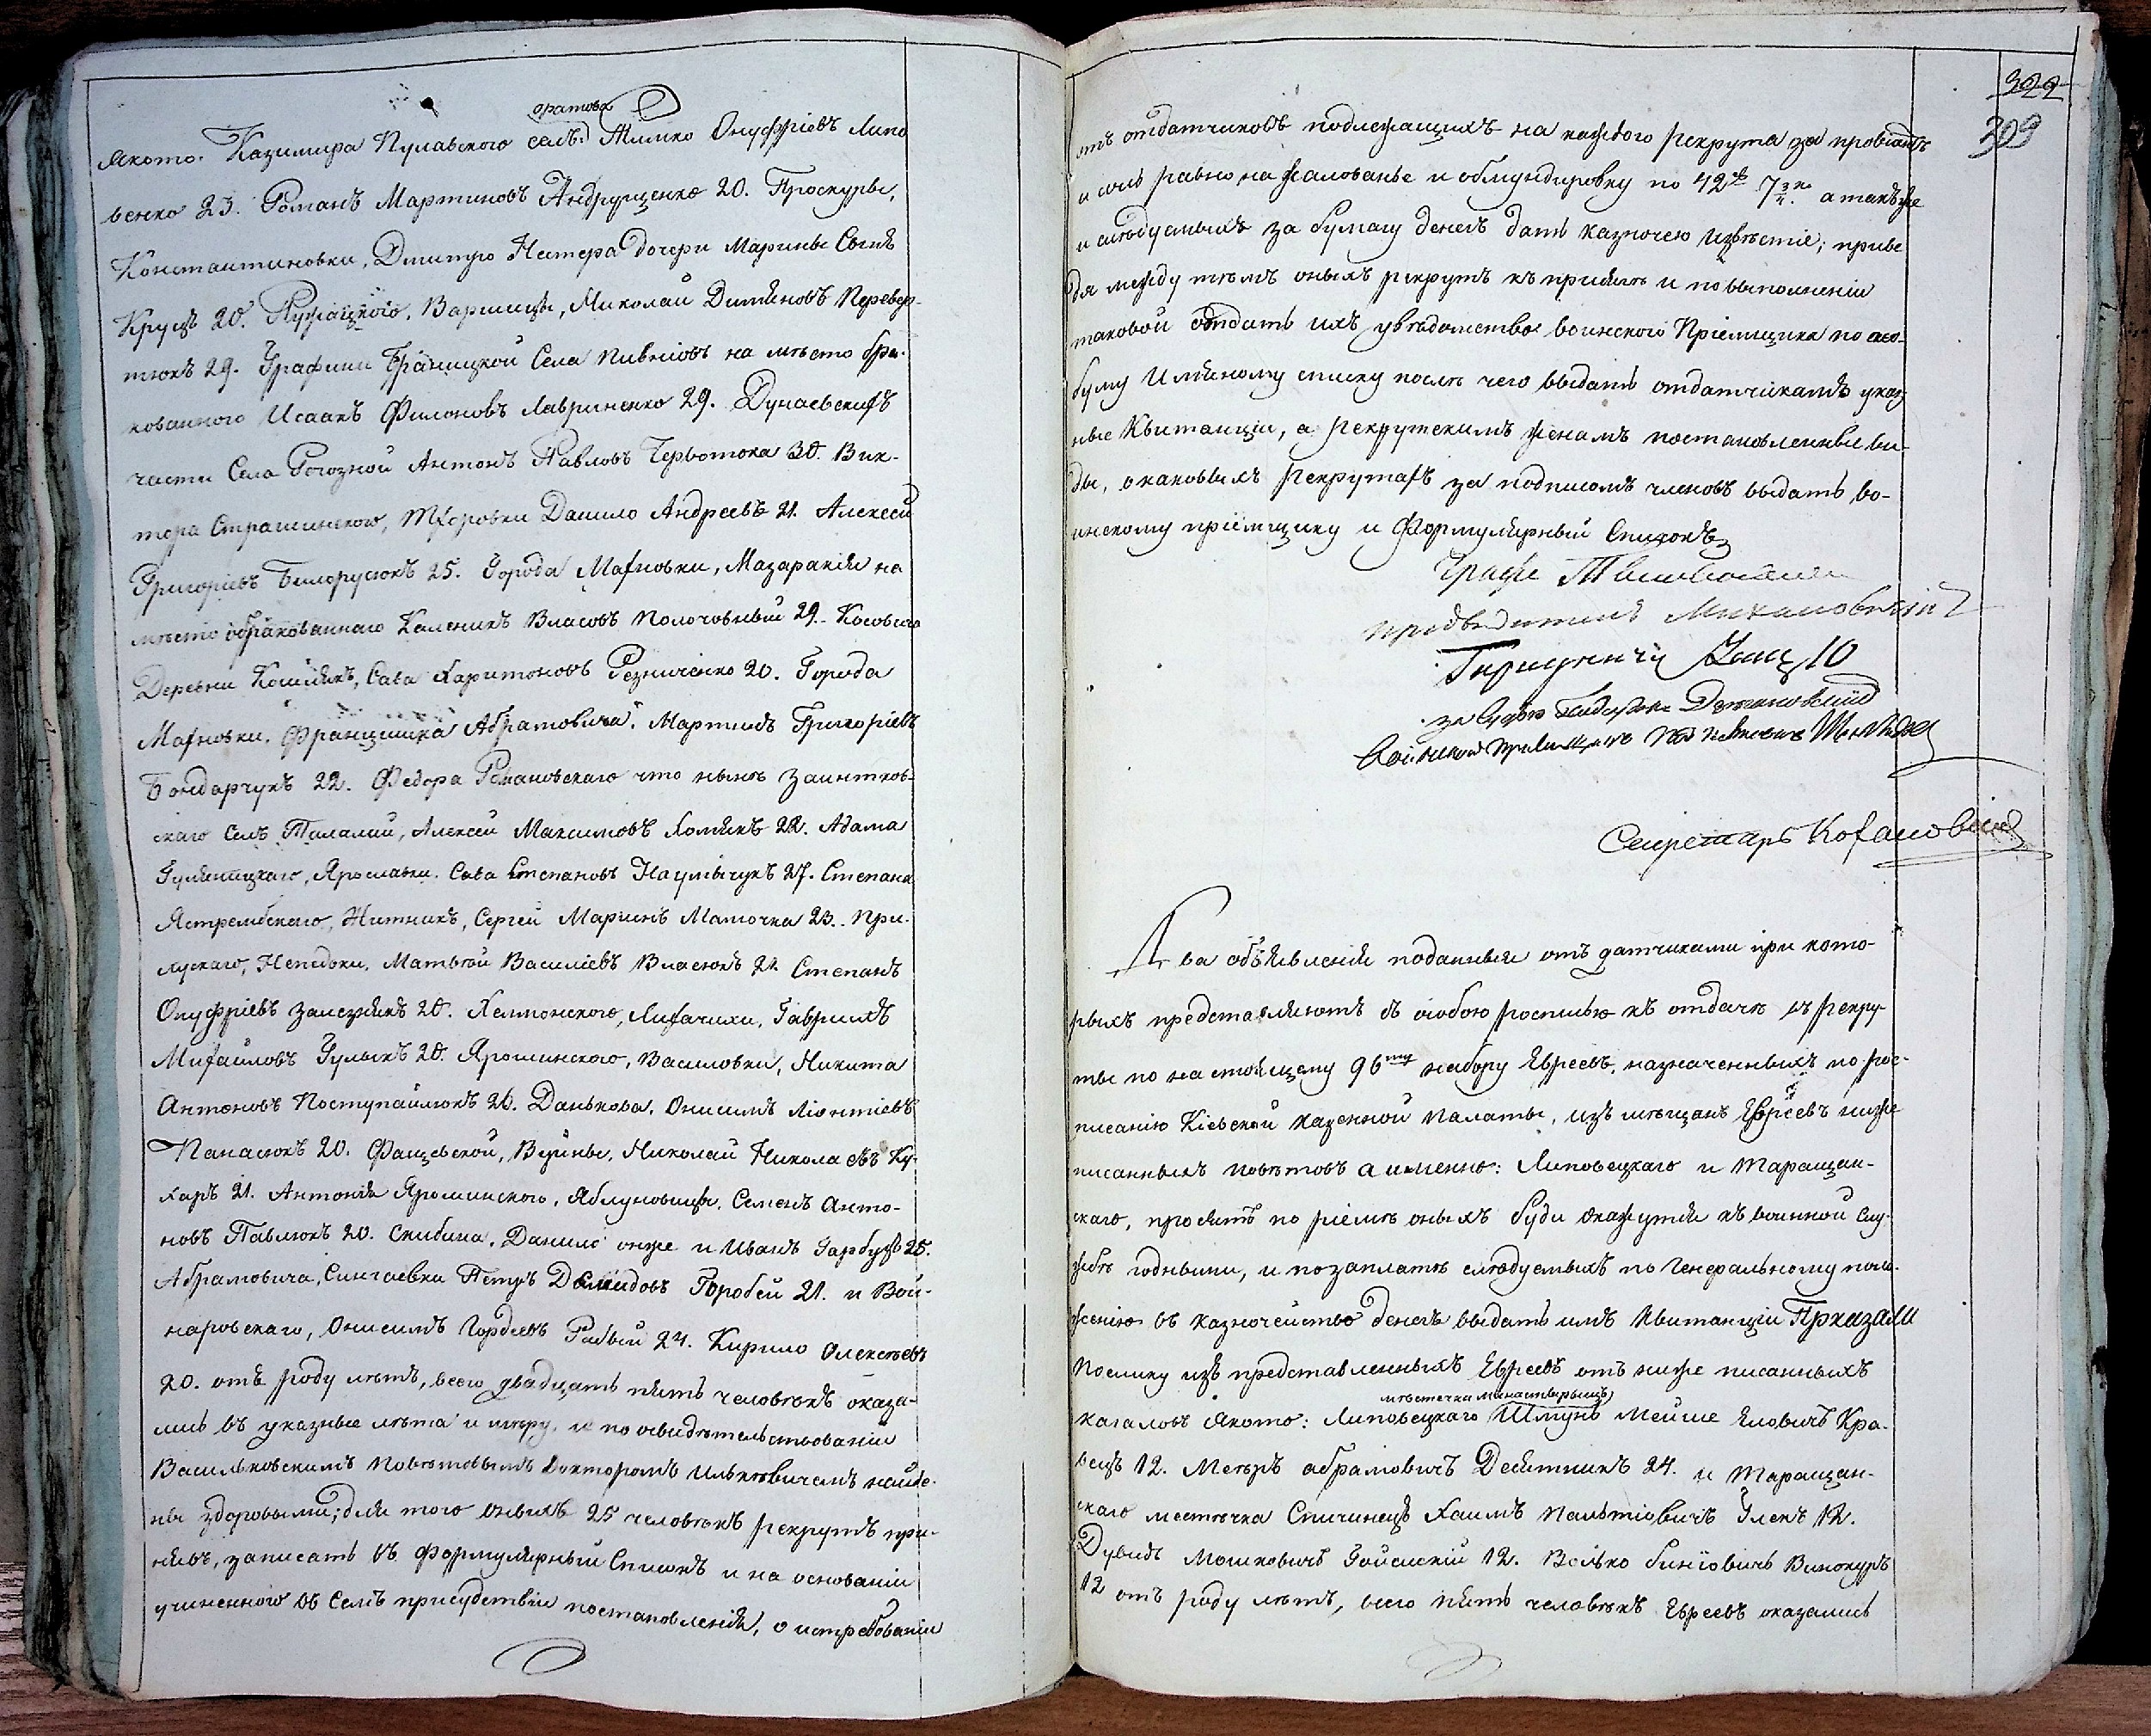 оратова
якото. Казимира Пулавского селъ: Тимко Онуфріевъ Липо
венко 23. Романъ Мартиновъ Андрущенко 20. Проскуры,
Константиновки, Дмитро Нестера дочери Марины Сынъ
Круцъ 20. Ружацкого, Варшицы, Миколай Димяновъ Перевер-
тюкъ 29. Графини Браницкой Села Пивніовъ на мѣсто бра-
кованного Исаакъ Филоновъ Лавриненко 29. Дунаевскихъ
части Села Рогозной Антонъ Павловъ Червотока 30. Вик-
тора Страшинского, Тхоровки Данило Андреевъ 21. Алексей
Григоріевъ Билорусюкъ 25. Города Махновки, Мазаракія на
мѣсто обракованнаго Каленикъ Власовъ Полочовный 29. Косовско
Деревни Кошлякъ, Сава Харитоновъ Резниченко 20. Города
Махновки. Францишка Абрамовича. Мартинъ Григоріевъ
Бондарчукъ 22. Федора Романовскаго что нынѣ Заинтков-
скаго Селъ Талалай, Алексей Максимовъ Хомякъ 22. Адама
Гуляницкаго, Ярославки. Сава Степановъ Наумычукъ 27. Степана
Ястрембскаго, Житникъ, Сергей Маріинъ Маточка 23. При-
лускаго, Непедоки, Матвѣй Василіевъ Власюкъ 21. Степанъ
Онуфріевъ Зализнякъ 20. Хелмонского, Лихачихи, Гавриилъ
Михайловъ Гулыкъ 20. Ярошинского, Василовки, Никита
Антоновъ Поступайлюкъ 26. Данькова. Онисимъ Ліонтіевъ
Панасюкъ 20. Фащевской, Вуйны, Николай Николаевъ Ку-
харъ 21. Антонія Ярошинского, Яблуновицы. Семенъ Анто-
новъ Павлюкъ 20. Скибина. Данило онже и Иванъ Гарбузъ 25.
Абрамовича, Сингаевки Петръ Демидовъ Горобей 21. и Вой-
наровскаго, Онисимъ Гордеевъ Рабый 24. Кирило Олексѣевъ
20. отъ роду лѣтъ, всего двадцать пять человѣкъ оказа-
лись въ указные лѣта и мѣру, и по освидѣтельствованіи
Васильковскимъ Повѣтовымъ докторомъ Ильковичемъ найде-
ны здоровыми; для того оныхъ 25 человѣкъ рекрутъ при-
нявъ, записать въ Формулярный Списокъ и на основаніи
учиненного въ Семъ присудствіи постановленія, о истребованіи
322
309
отъ отдатчиковъ подлежащихъ на каждого рекрута за провіантъ
и соль равно на жалованье и обмундировку по 42 7 3/4 а такъже
и слѣдуемыхъ за бумагу денегъ дать казначею извѣстіе; приве
дя между тѣмъ оныхъ рекрутъ къ присягѣ и по выполненіи
таковой отдать ихъ у вѣдомство воинского Пріемщика по осо-
бому Имянному списку послѣ чего выдать отдатчикамъ указ
ные Квитанціи, а рекрутскимъ женамъ постановленные ви-
ды, о каковыхъ рекрутахъ за подписомъ членовъ выдать во-
инскому пріемщику и Формулярный Списокъ
Графъ
предводитель Михаловскій

Секретаръ Кохановскій
Два объявленія поданные отъ датчиками при кото-
рыхъ представляютъ съ особою росписью къ отдачѣ въ рекру-
ты по настоящему 96му набору Евреевъ, назначенныхъ по рос-
писанію Кіевской казенной палаты, изъ мѣщанъ Евреевъ ниже
писанныхъ повѣтовъ а именно: Липовецкаго и Таращан-
скаго, просятъ по ріемѣ оныхъ буди окажутся къ воинной слу-
жбѣ годными, и позаплатѣ слѣдуемыхъ по Генеральному поло-
женію въ казначейство денегъ выдать имъ квитанціи Приказали
Поелику изъ представленныхъ Евреевъ отъ ниже писанныхъ
мѣстечка манастырыщъ
кагаловъ якото: Липовецкаго Шмунь Мейше Еловичъ Кра-
вецъ 12. Мееръ Абрамовичъ Десятникъ 24. и Таращан-
скаго местечка Спичинецъ Хаимъ Пальтіовичъ Глекъ 12.
Дувидъ Мошковичъ Зайенскій 12. Велько Биніовичъ Винокуръ
12 отъ роду лѣтъ, всего пять человѣкъ Евреевъ оказались